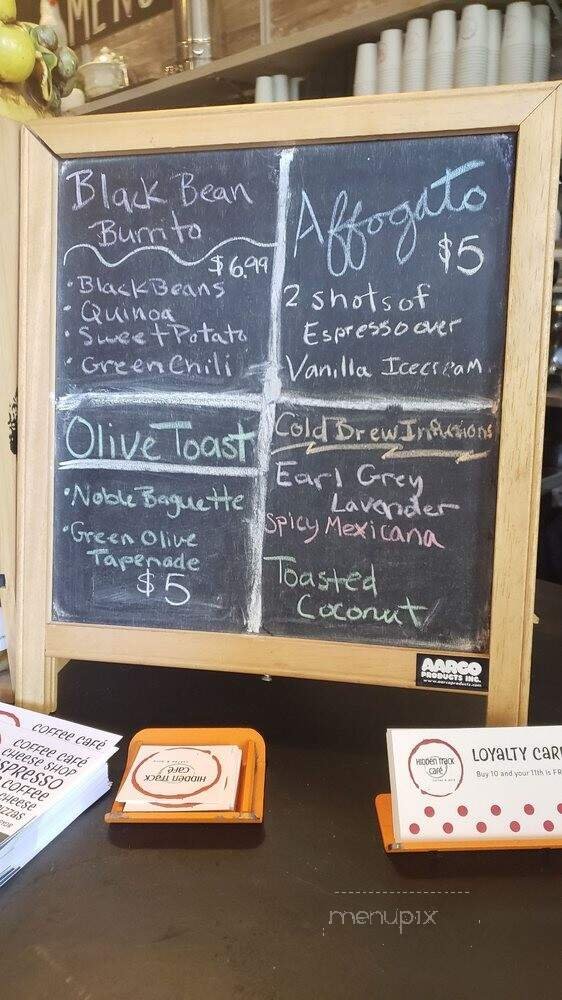 MEN
Black Bean
Burrito
$6.99
• Black Beans
• Quinoa
• Sweet Potato
• Green Chili
Affogato
$5
2 shots of
Espresso over
Vanilla Icecream
Olive Toast
• Noble Baguette
• Green Olive
Tapenade
$5
Cold Brew Infusions
Earl Grey
Lavender
Spicy Mexicana
Toasted
Coconut
AARCO
PRODUCTS INC.
www.aarcoproducts.com
COFFEE CAFÉ
COFFEE CAFÉ
CHEESE SHOP
ESPRESSO
COFFEE
CHEESE
PIZZAS
HIDDEN TRACK
CAFÉ
HIDDEN TRACK
CAFÉ
LOYALTY CAR
Buy 10 and your 11th is FR
menupix